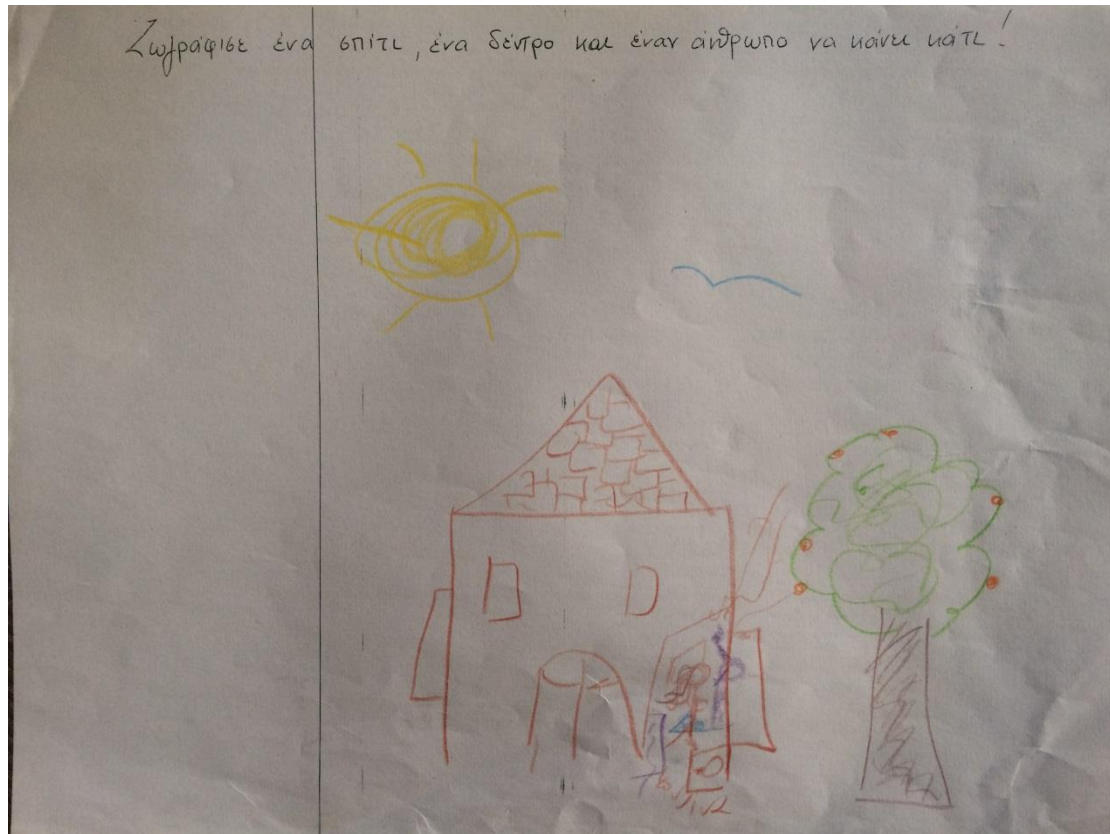 Ζωγράφισε ένα σπίτι, ένα δέντρο και έναν άνθρωπο να κάνει κάτι!